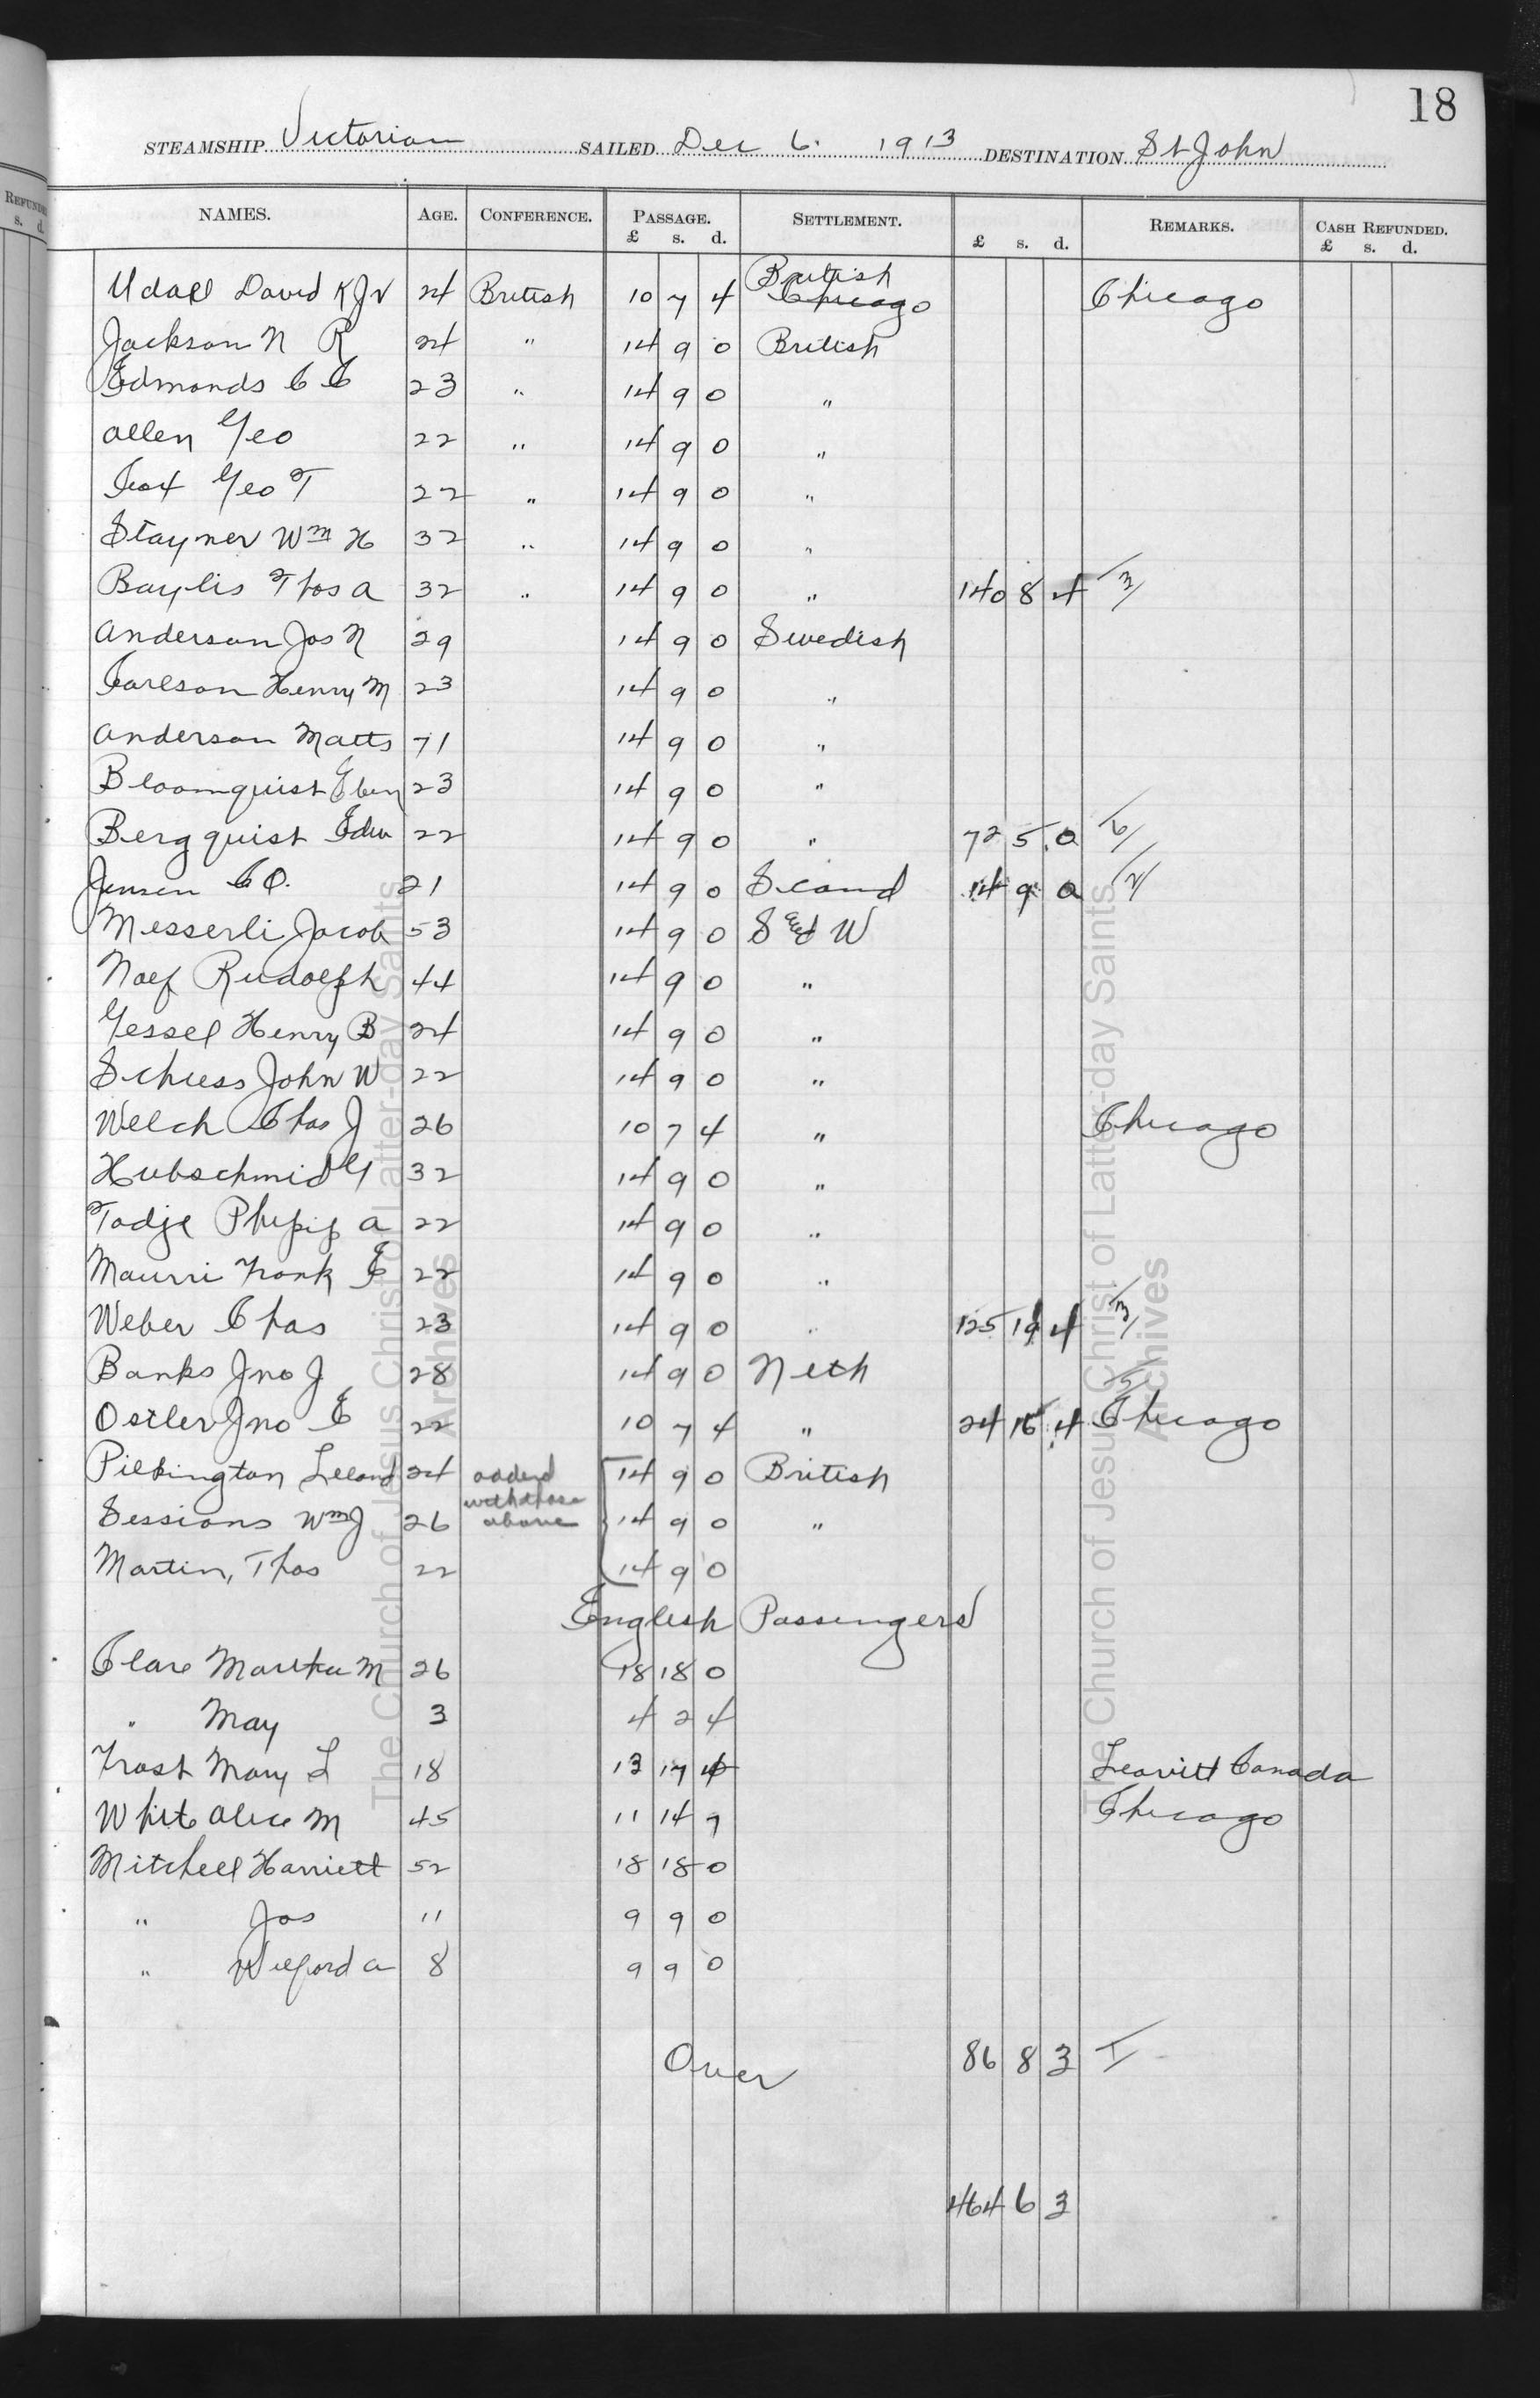 18
STEAMSHIP Victorian SAILED Dec 6. 1913 DESTINATION St John
NAMES. AGE. CONFERENCE. PASSAGE. £ s. d. SETTLEMENT. £ s. d. REMARKS. CASH REFUNDED. £ s. d.
Udall David K Jr 24 British 10 7 4 British Chicago Chicago
Jackson N R 24 " 14 9 0 British
Edmonds C C 23 " 14 9 0 "
Allen Geo 22 " 14 9 0 "
Geo T 22 " 14 9 0 "
Stayner Wm H 32 " 14 9 0 "
Baylis Thos A 32 " 14 9 0 " 140 8 4 3/
Anderson Jos N 29 14 9 0 Swedish
Carlson Henry M 23 14 9 0 "
Anderson Matts 71 14 9 0 "
Bloomquist Eben 23 14 9 0 "
Bergquist Edw 22 14 9 0 " 72 5 0
Jensen C O. 21 14 9 0 Scand 14 9 0
Messerli Jacob 53 14 9 0 S & W
Naef Rudolph 44 14 9 0 "
Gessel Henry B 24 14 9 0 "
Schiess John W 22 14 9 0 "
Welch Chas J 26 10 7 4 " Chicago
Hubschmid G 32 14 9 0 "
Tadje Phillip A 22 14 9 0 "
Maurri Frank E 22 14 9 0 "
Weber Chas 23 14 9 0 " 125 19 4 3/
Banks Jno J 28 14 9 0 Neth
Ostler Jno E 22 10 7 4 " 24 16 4 Chicago
Pilkington Leland 24 added with those above 14 9 0 British
Sessions Wm J 26 14 9 0 "
Martin, Thos 22 14 9 0
English Passengers
Clare Martha M 26 18 18 0
" May 3 4 2 4
Frost Mary L 18 13 17 4 Leavitt Canada
White Alice M 45 11 14 7 Chicago
Mitchell Harriett 52 18 18 0
" Jas 11 9 9 0
" Wilford A 8 9 9 0
Over 86 8 3
464 6 3
The Church of Jesus Christ of Latter-day Saints
Archives
The Church of Jesus Christ of Latter-day Saints
Archives